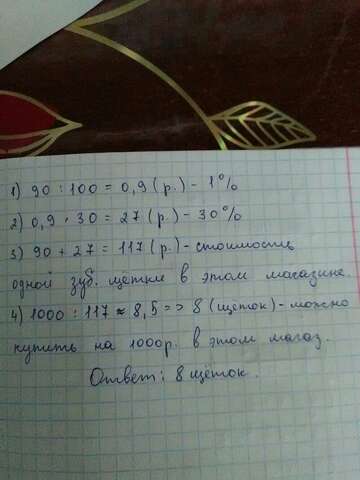 1) 90 : 100 = 0,9 (р.) - 1%
2) 0,9 · 30 = 27 (р.) - 30%
3) 90 + 27 = 117 (р.) - стоимость
одной зуб. щётки в этом магазине.
4) 1000 : 117 ≈ 8,5 => 8 (щёток) - можно
купить на 1000р. в этом магаз.
Ответ: 8 щёток.